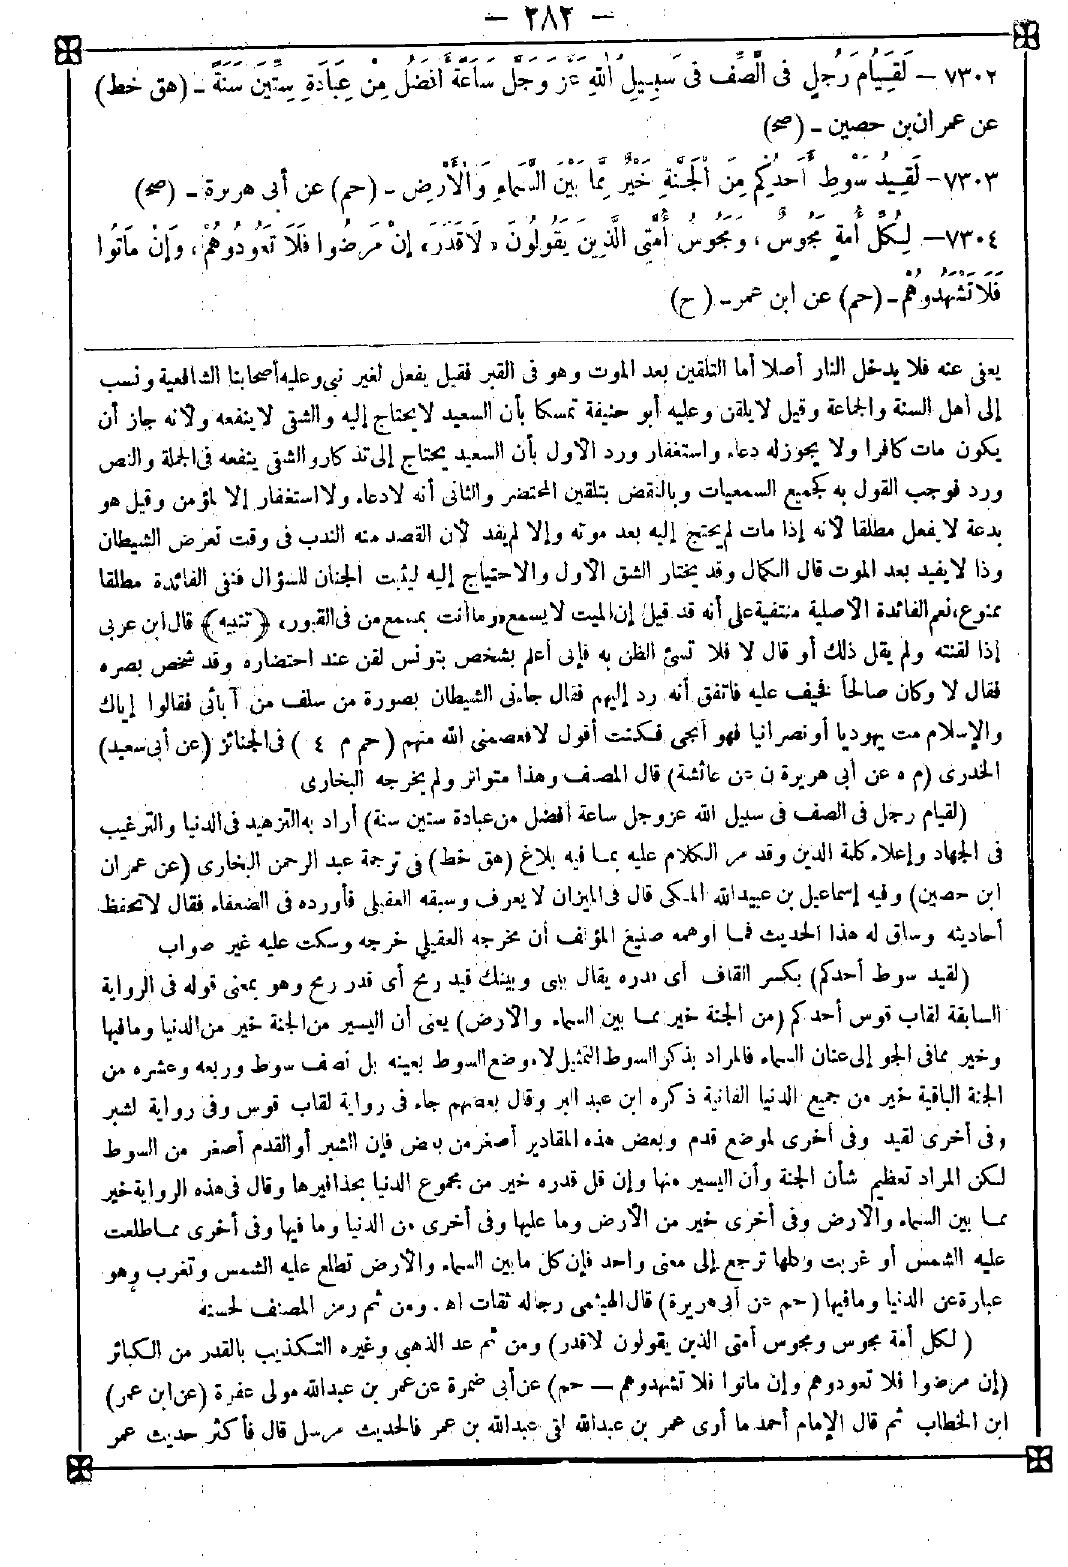 — ٢٨٢ —
٧٣٠٢ — لَقِيَامُ رَجُلٍ فِى الصَّفِّ فِى سَبِيلِ اللهِ عَزَّ وَجَلَّ سَاعَةً أَفْضَلُ مِنْ عِبَادَةِ سِتِّينَ سَنَةً ــ (هق خط)
عن عمران بن حصين ــ (صح)
٧٣٠٣ — لَقِيدُ سَوْطِ أَحَدِكُمْ مِنَ الْجَنَّةِ خَيْرٌ مِمَّا بَيْنَ السَّمَاءِ وَالْأَرْضِ ــ (حم) عن أبى هريرة ــ (صح)
٧٣٠٤ — لِكُلِّ أُمَّةٍ مَجُوسٌ، وَمَجُوسُ أُمَّتِى الَّذِينَ يَقُولُونَ «لَا قَدَرَ» إِنْ مَرِضُوا فَلَا تَعُودُوهُمْ، وَإِنْ مَاتُوا
فَلَا تَشْهَدُوهُمْ ــ (حم) عن ابن عمر ــ (ح)
يعنى عنه فلا يدخل النار أصلا أما التلقين بعد الموت وهو فى القبر فقيل يفعل لغير نبى وعليه أصحابنا الشافعية ونسب
إلى أهل السنة والجماعة وقيل لا يلقن وعليه أبو حنيفة تمسكا بأن السعيد لا يحتاج إليه والشقى لا ينفعه ولأنه جاز أن
يكون مات كافرا ولا يجوز له دعاء واستغفار ورد الأول بأن السعيد يحتاج إلى تذكار والشقى ينفعه فى الجملة والنص
ورد فوجب القول به كجميع السمعيات وبالنقض بتلقين المحتضر والثانى أنه لا دعاء ولا استغفار إلا لمؤمن وقيل هو
بدعة لا يفعل مطلقا لأنه إذا مات لم يحتج إليه بعد موته وإلا لم يفد لأن القصد منه الندب فى وقت تعرض الشيطان
وذا لا يفيد بعد الموت قال الكمال وقد يختار الشق الأول والاحتياج إليه ليثبت الجنان للسؤال فنفى الفائدة مطلقا
ممنوع، نعم الفائدة الأصلية منتفية على أنه قد قيل إن الميت لا يسمع «وما أنت بمسمع من فى القبور» (تنبيه) قال ابن عربى
إذا لقنته ولم يقل ذلك أو قال لا فلا تسئ الظن به فإنى أعلم بشخص بتونس لقن عند احتضاره وقد شخص بصره
فقال لا وكان صالحاً نخيف عليه فاتفق أنه رد إليهم فقال جاءنى الشيطان بصورة من سلف من آبائى فقالوا إياك
والإسلام مت يهوديا أو نصرانيا فهو أنجى فكنت أقول لا فعصمنى الله منهم (حم م ٤) فى الجنائز (عن أبى سعيد)
الخدرى (م ه عن أبى هريرة ن عن عائشة) قال المصنف وهذا متواتر ولم يخرجه البخارى
(لقيام رجل فى الصف فى سبيل الله عز وجل ساعة أفضل من عبادة ستين سنة) أراد به التزهيد فى الدنيا والترغيب
فى الجهاد وإعلاء كلمة الدين وقد مر الكلام عليه بما فيه بلاغ (هق خط) فى ترجمة عبد الرحمن البخارى (عن عمران
ابن حصين) وفيه إسماعيل بن عبيدالله المكى قال فى الميزان لا يعرف وسبقه العقيلى فأورده فى الضعفاء فقال لا تحفظ
أحاديثه وساق له هذا الحديث فما أوهمه صنيع المؤلف أن مخرجه العقيلى خرجه وسكت عليه غير صواب
(لقيد سوط أحدكم) بكسر القاف أى قدره يقال بينى وبينك قيد رمح أى قدر رمح وهو بمعنى قوله فى الرواية
السابقة لقاب قوس أحدكم (من الجنة خير مما بين السماء والأرض) يعنى أن اليسير من الجنة خير من الدنيا ومافيها
وخير مما فى الجو إلى عنان السماء فالمراد بذكر السوط التمثيل لا موضع السوط بعينه بل نصف سوط وربعه وعشره من
الجنة الباقية خير من جميع الدنيا الفانية ذكره ابن عبد البر وقال بعضهم جاء فى رواية لقاب قوس وفى رواية لشبر
وفى أخرى لقيد وفى أخرى لموضع قدم وبعض هذه المقادير أصغر من بعض فإن الشبر أو القدم أصغر من السوط
لكن المراد تعظيم شأن الجنة وأن اليسير منها وإن قل قدره خير من مجموع الدنيا بحذافيرها وقال فى هذه الرواية خير
مما بين السماء والأرض وفى أخرى خير من الأرض وما عليها وفى أخرى من الدنيا وما فيها وفى أخرى مما طلعت
عليه الشمس أو غربت وكلها ترجع إلى معنى واحد فإن كل ما بين السماء والأرض تطلع عليه الشمس وتغرب وهو
عبارة عن الدنيا ومافيها (حم عن أبى هريرة) قال الهيثمى رجاله ثقات اه. ومن ثم رمز المصنف لحسنه
(لكل أمة مجوس ومجوس أمتى الذين يقولون لا قدر) ومن ثم عد الذهبى وغيره التكذيب بالقدر من الكبائر
(إن مرضوا فلا تعودوهم وإن ماتوا فلا تشهدوهم — حم) عن أبى ضمرة عن عمر بن عبدالله مولى عفرة (عن ابن عمر)
ابن الخطاب ثم قال الإمام أحمد ما أرى عمر بن عبدالله لقى عبدالله بن عمر فالحديث مرسل قال فأكثر حديث عمر